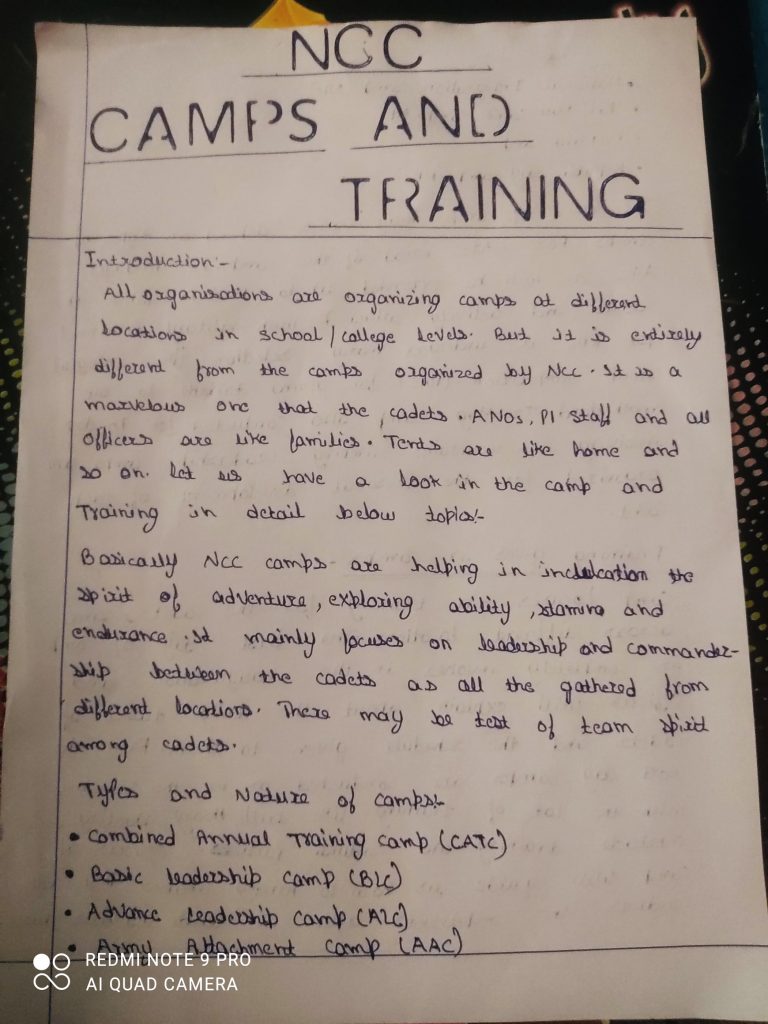 NCC
CAMPS AND
TRAINING
Introduction:-
All organisations are organizing camps at different
locations in school/college levels. But it is entirely
different from the camps organized by NCC. It is a
marvelous one that the cadets. ANOs, PI staff and all
officers are like families. Tents are like home and
so on. Let us have a look in the camp and
Training in detail below topics:-
Basically NCC camps are helping in inclulcation the
spirit of adventure, exploring ability, stamina and
endurance. It mainly focuses on leadership and commander-
ship between the cadets as all the gathered from
different locations. There may be test of team spirit
among cadets.
Types and Nature of camps:-
• Combined Annual Training camp (CATC)
• Basic leadership camp (BLC)
• Advance Leadership camp (ALC)
• Army Attachment camp (AAC)
REDMI NOTE 9 PRO
AI QUAD CAMERA